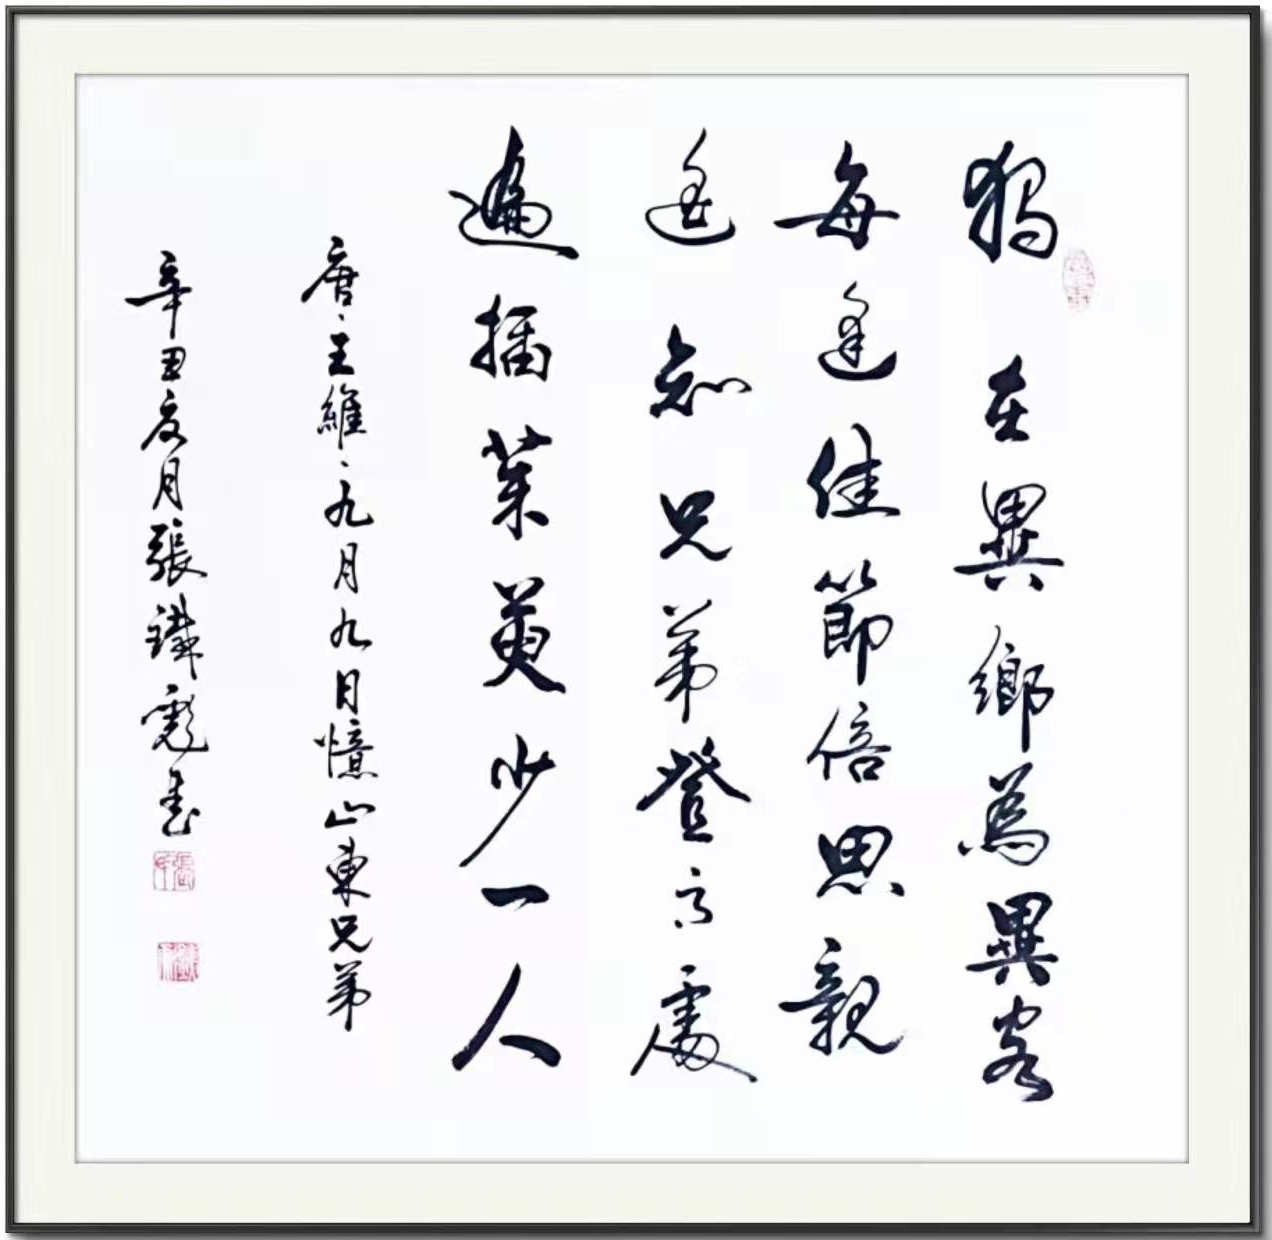 獨在異鄉為異客
每逢佳節倍思親
遙知兄弟登高處
遍插茱萸少一人
唐、王維、九月九日憶山東兄弟
辛丑夏月張鐵彪書